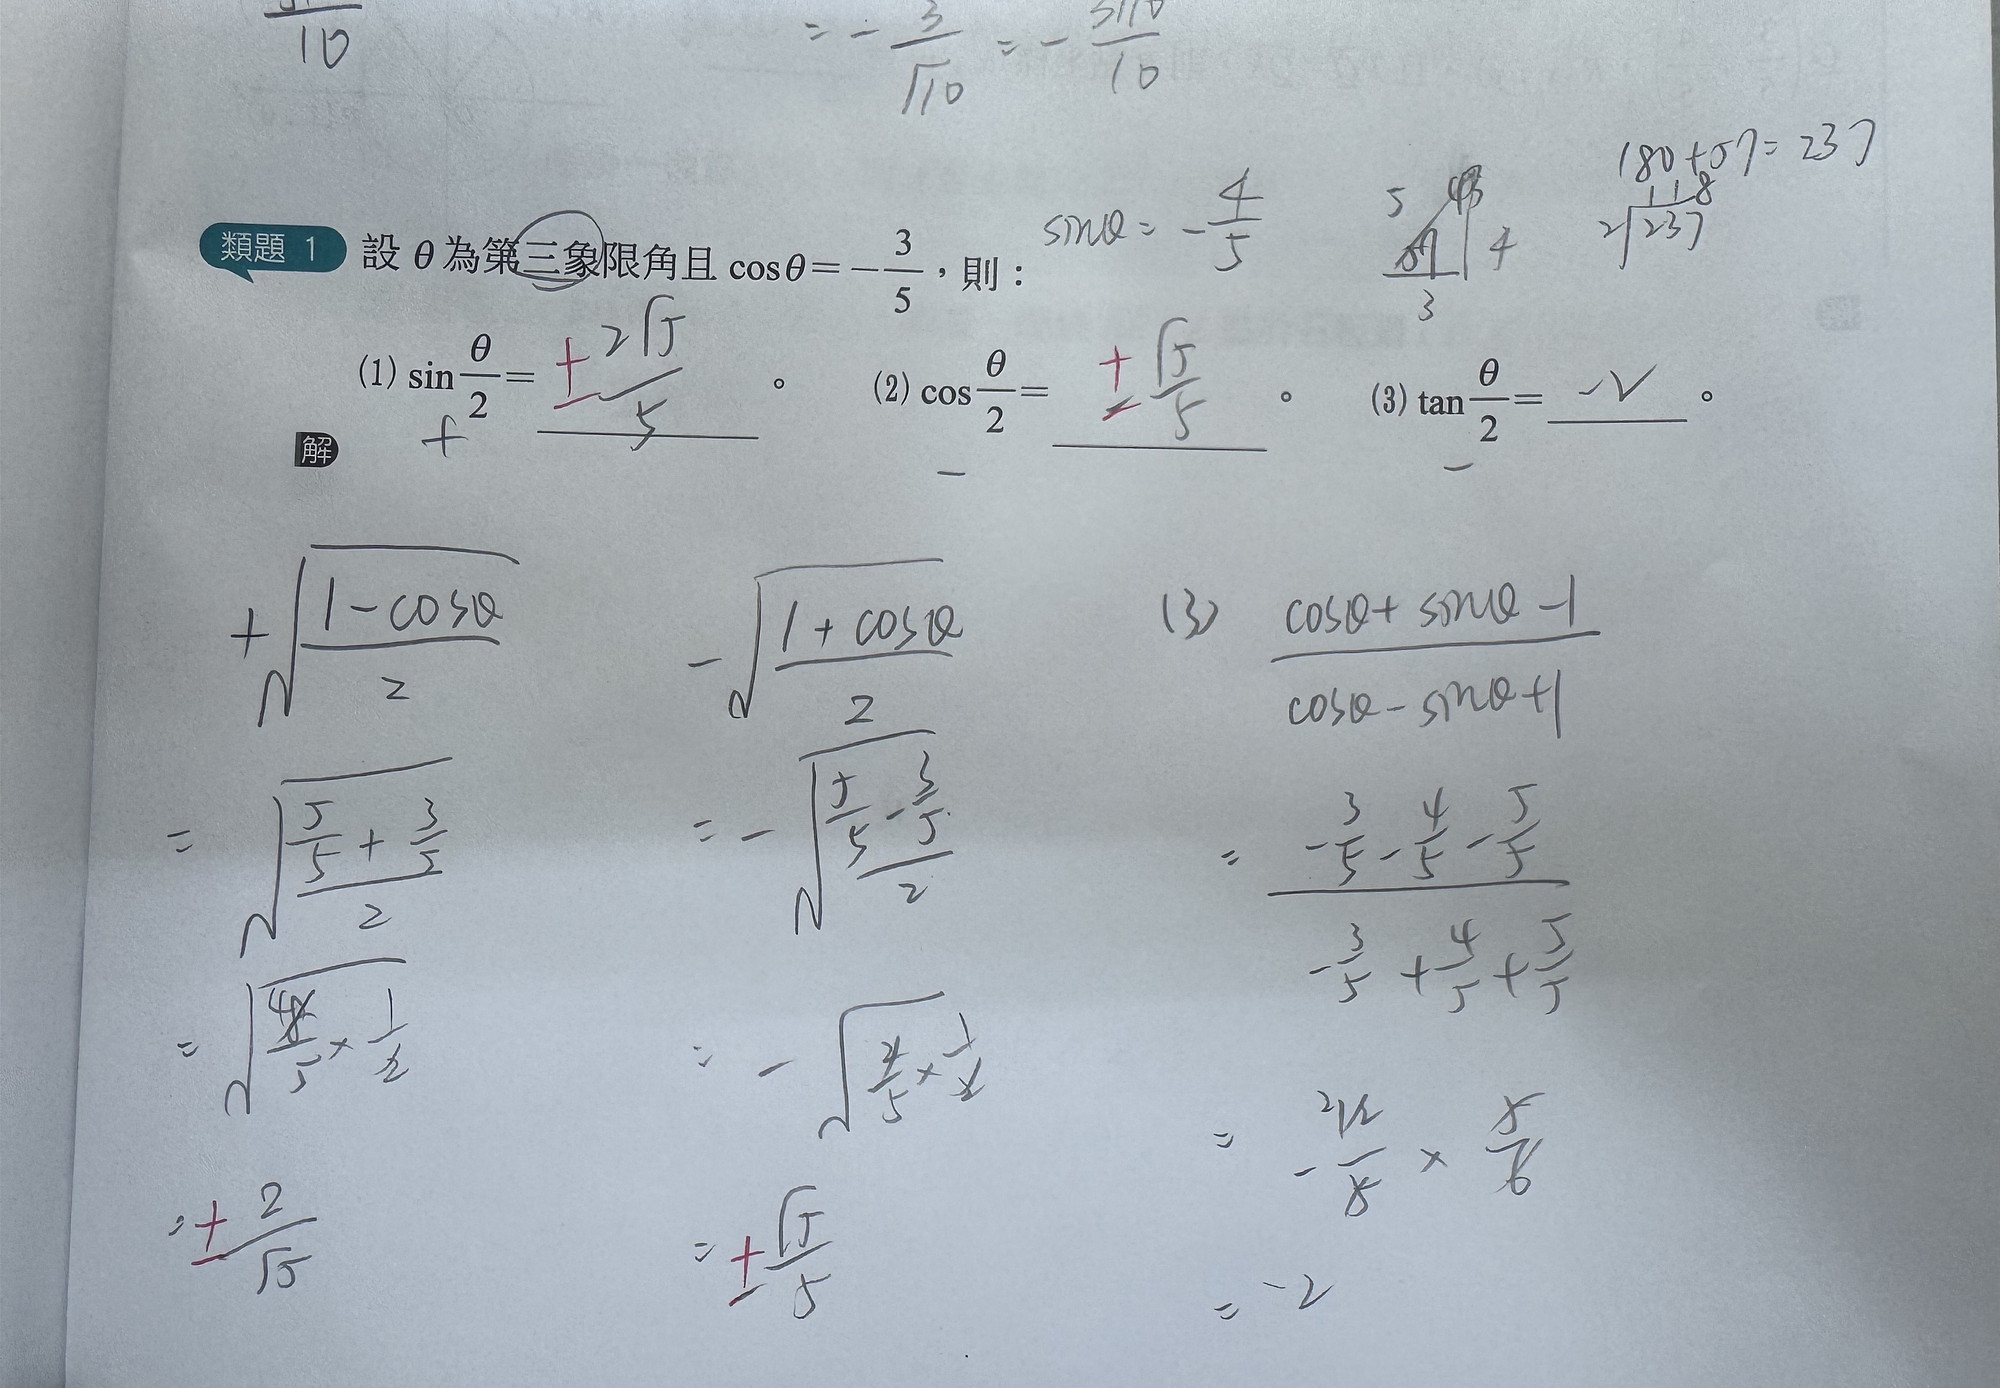 10
= - 3/√10 = - 3√10/10
180+57=237
118
2√237
類題 1 設 θ 為第三象限角且 cosθ=-3/5，則：
sinθ = - 4/5
5
4
3
(1) sin θ/2 = ± 2√5/5 。 (2) cos θ/2 = ± √5/5 。 (3) tan θ/2 = -2 。
+ - -
解
+√((1-cosθ)/2)
= √((5/5+3/5)/2)
= √(48/5 × 1/2)
= ± 2/√5
-√((1+cosθ)/2)
= -√((5/5-3/5)/2)
= -√(2/5 × 1/2)
= ± √5/5
(3) (cosθ+sinθ-1)/(cosθ-sinθ+1)
= (-3/5-4/5-5/5)/(-3/5+4/5+5/5)
= - 2 12/5 × 5/6
= -2